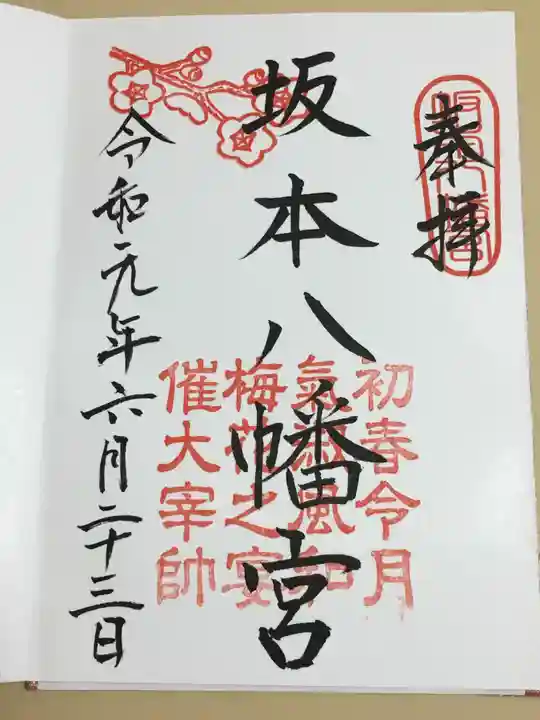 奉拝
坂本八幡宮
初春令月
氣淑風和
梅花之宴
催大宰帥
令和元年六月二十三日